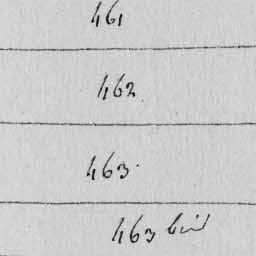 461
462
463
463 bis